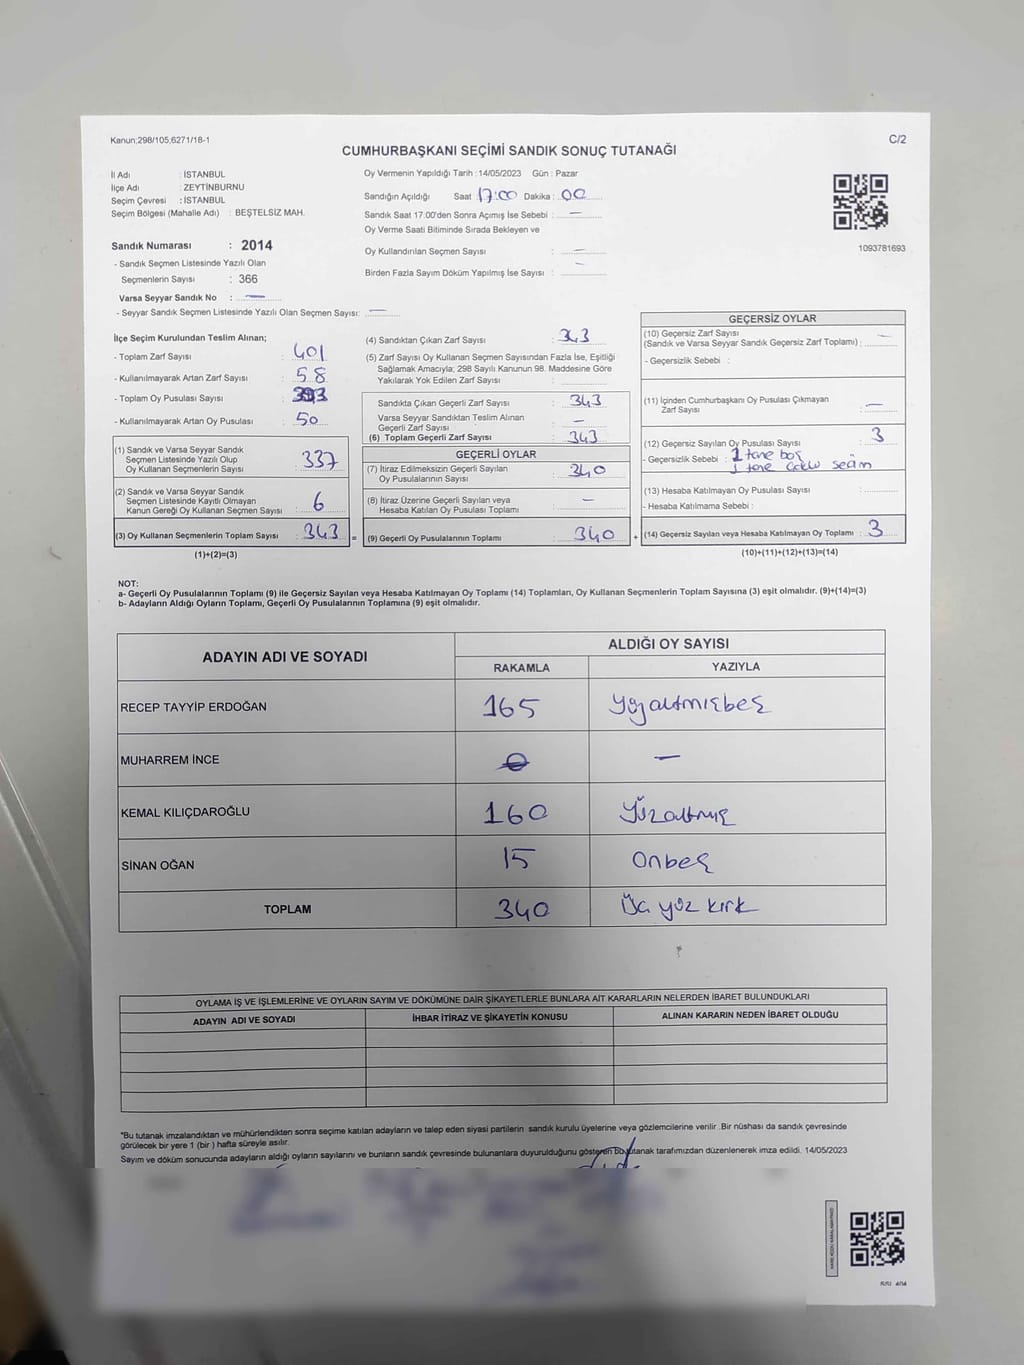 Kanun:298/105,6271/18-1
C/2
CUMHURBAŞKANI SEÇİMİ SANDIK SONUÇ TUTANAĞI
İl Adı : İSTANBUL
İlçe Adı : ZEYTİNBURNU
Seçim Çevresi : İSTANBUL
Seçim Bölgesi (Mahalle Adı) : BEŞTELSİZ MAH.
Sandık Numarası : 2014
- Sandık Seçmen Listesinde Yazılı Olan
Seçmenlerin Sayısı : 366
Varsa Seyyar Sandık No : —
- Seyyar Sandık Seçmen Listesinde Yazılı Olan Seçmen Sayısı: —
Oy Vermenin Yapıldığı Tarih : 14/05/2023 Gün : Pazar
Sandığın Açıldığı Saat 17:00 Dakika : 00
Sandık Saat 17.00'den Sonra Açımış İse Sebebi : —
Oy Verme Saati Bitiminde Sırada Bekleyen ve
Oy Kullandırılan Seçmen Sayısı : —
Birden Fazla Sayım Döküm Yapılmış İse Sayısı : —
1093781693
İlçe Seçim Kurulundan Teslim Alınan;
- Toplam Zarf Sayısı : 401
- Kullanılmayarak Artan Zarf Sayısı : 58
- Toplam Oy Pusulası Sayısı :
- Kullanılmayarak Artan Oy Pusulası : 50
(1) Sandık ve Varsa Seyyar Sandık
Seçmen Listesinde Yazılı Olup
Oy Kullanan Seçmenlerin Sayısı : 337
(2) Sandık ve Varsa Seyyar Sandık
Seçmen Listesinde Kayıtlı Olmayan
Kanun Gereği Oy Kullanan Seçmen Sayısı : 6
(3) Oy Kullanan Seçmenlerin Toplam Sayısı : 343 =
(1)+(2)=(3)
(4) Sandıktan Çıkan Zarf Sayısı : 343
(5) Zarf Sayısı Oy Kullanan Seçmen Sayısından Fazla İse, Eşitliği
Sağlamak Amacıyla; 298 Sayılı Kanunun 98. Maddesine Göre
Yakılarak Yok Edilen Zarf Sayısı :
Sandıkta Çıkan Geçerli Zarf Sayısı : 343
Varsa Seyyar Sandıktan Teslim Alınan
Geçerli Zarf Sayısı : —
(6) Toplam Geçerli Zarf Sayısı : 343
GEÇERLİ OYLAR
(7) İtiraz Edilmeksizin Geçerli Sayılan
Oy Pusulalarının Sayısı : 340
(8) İtiraz Üzerine Geçerli Sayılan veya
Hesaba Katılan Oy Pusulası Toplamı : —
(9) Geçerli Oy Pusulalarının Toplamı : 340 +
GEÇERSİZ OYLAR
(10) Geçersiz Zarf Sayısı
(Sandık ve Varsa Seyyar Sandık Geçersiz Zarf Toplamı) : —
- Geçersizlik Sebebi :
(11) İçinden Cumhurbaşkanı Oy Pusulası Çıkmayan
Zarf Sayısı : —
(12) Geçersiz Sayılan Oy Pusulası Sayısı : 3
- Geçersizlik Sebebi : 1 tane boş
1 tane seçim
(13) Hesaba Katılmayan Oy Pusulası Sayısı :
- Hesaba Katılmama Sebebi :
(14) Geçersiz Sayılan veya Hesaba Katılmayan Oy Toplamı : 3
(10)+(11)+(12)+(13)=(14)
NOT:
a- Geçerli Oy Pusulalarının Toplamı (9) ile Geçersiz Sayılan veya Hesaba Katılmayan Oy Toplamı (14) Toplamları, Oy Kullanan Seçmenlerin Toplam Sayısına (3) eşit olmalıdır. (9)+(14)=(3)
b- Adayların Aldığı Oyların Toplamı, Geçerli Oy Pusulalarının Toplamına (9) eşit olmalıdır.
ADAYIN ADI VE SOYADI
ALDIĞI OY SAYISI
RAKAMLA YAZIYLA
RECEP TAYYİP ERDOĞAN 165 Yüzaltmışbeş
MUHARREM İNCE 0 —
KEMAL KILIÇDAROĞLU 160 Yüzaltmış
SİNAN OĞAN 15 Onbeş
TOPLAM 340 Üç yüz kırk
OYLAMA İŞ VE İŞLEMLERİNE VE OYLARIN SAYIM VE DÖKÜMÜNE DAİR ŞİKAYETLERLE BUNLARA AİT KARARLARIN NELERDEN İBARET BULUNDUKLARI
ADAYIN ADI VE SOYADI İHBAR İTİRAZ VE ŞİKAYETİN KONUSU ALINAN KARARIN NEDEN İBARET OLDUĞU
*Bu tutanak imzalandıktan ve mühürlendikten sonra seçime katılan adayların ve talep eden siyasi partilerin sandık kurulu üyelerine veya gözlemcilerine verilir. Bir nüshası da sandık çevresinde
görülecek bir yere 1 (bir) hafta süreyle asılır.
Sayım ve döküm sonucunda adayların aldığı oyların sayılarını ve bunların sandık çevresinde bulunanlara duyurulduğunu gösteren bu tutanak tarafımızdan düzenlenerek imza edildi. 14/05/2023